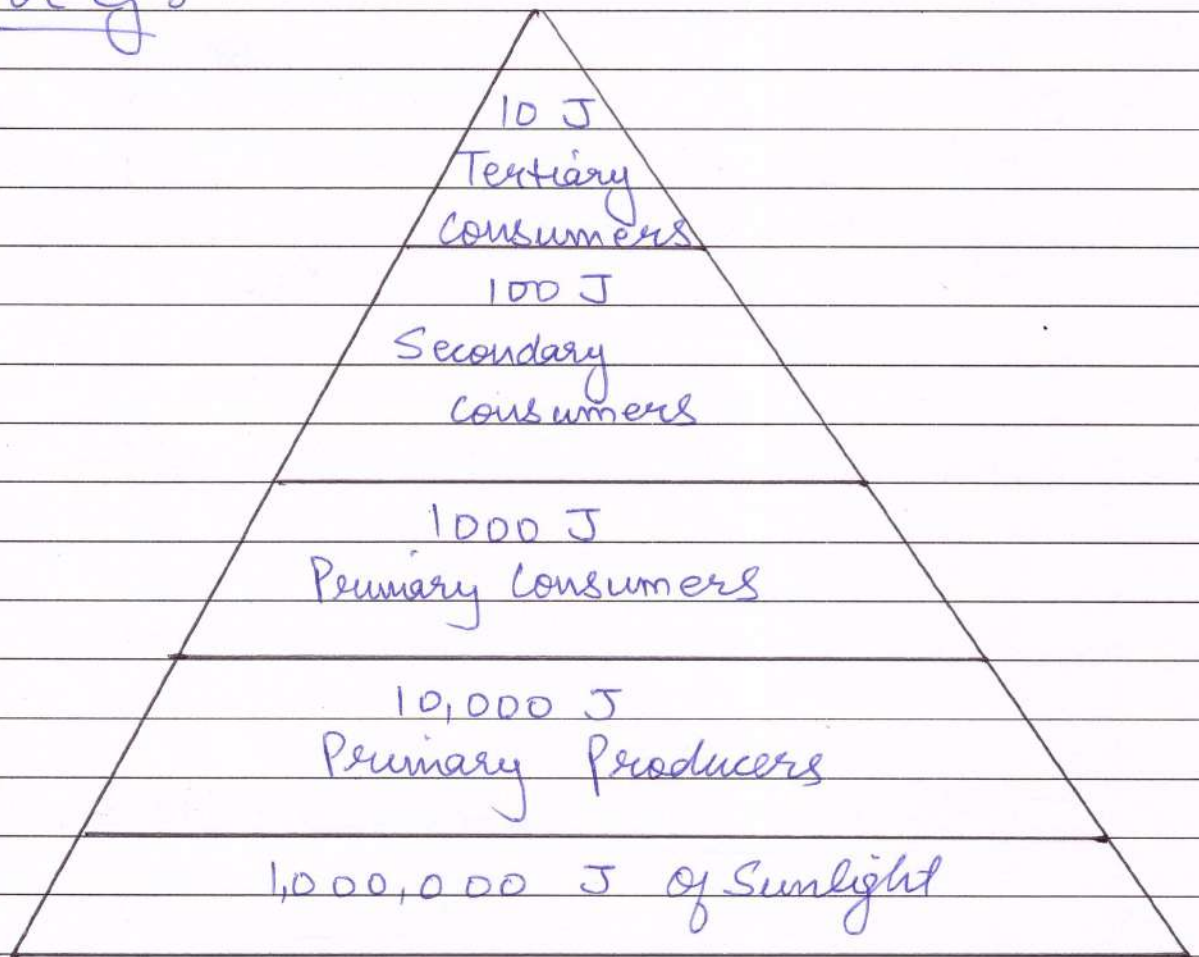 10 J
Tertiary
Consumers
100 J
Secondary
consumers
1000 J
Primary Consumers
10,000 J
Primary Producers
1,000,000 J of Sunlight